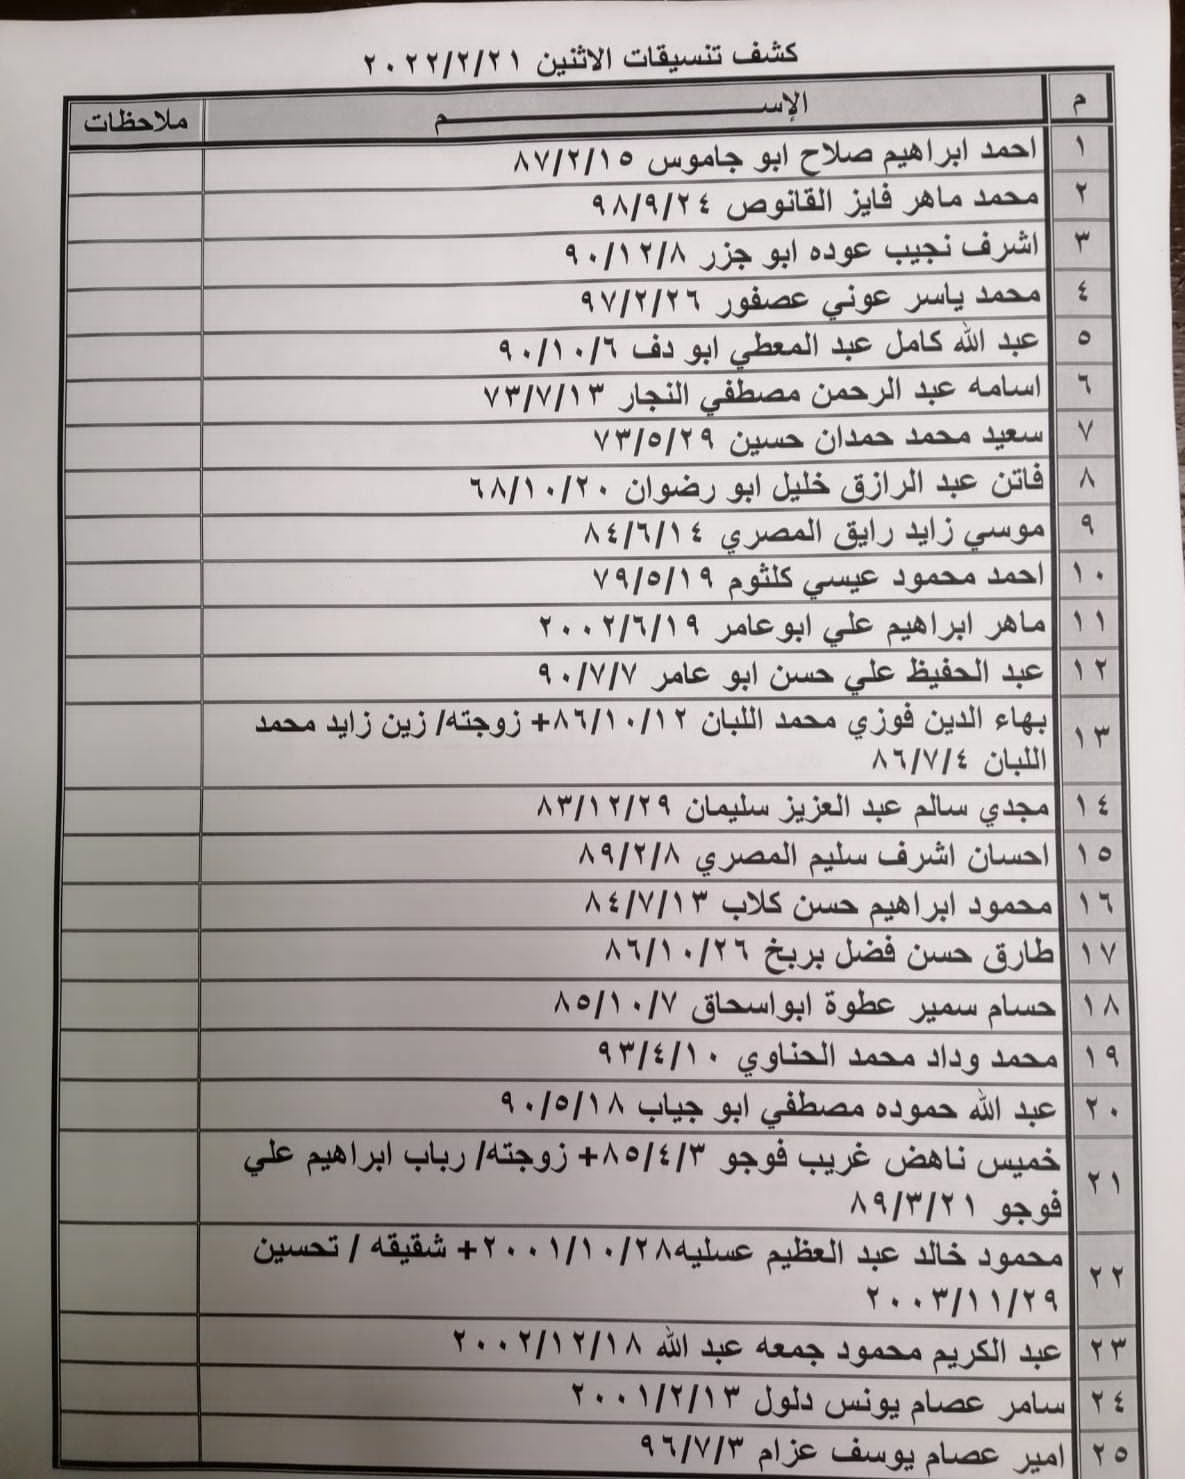 كشف تنسيقات الاثنين ٢٠٢٢/٢/٢١
م الإســـــــــــــم ملاحظات
١ احمد ابراهيم صلاح ابو جاموس ٨٧/٢/١٥
٢ محمد ماهر فايز القانوص ٩٨/٩/٢٤
٣ اشرف نجيب عوده ابو جزر ٩٠/١٢/٨
٤ محمد ياسر عوني عصفور ٩٧/٢/٢٦
٥ عبد الله كامل عبد المعطي ابو دف ٩٠/١٠/٦
٦ اسامه عبد الرحمن مصطفي النجار ٧٣/٧/١٣
٧ سعيد محمد حمدان حسين ٧٣/٥/٢٩
٨ فاتن عبد الرازق خليل ابو رضوان ٦٨/١٠/٢٠
٩ موسي زايد رايق المصري ٨٤/٦/١٤
١٠ احمد محمود عيسي كلثوم ٧٩/٥/١٩
١١ ماهر ابراهيم علي ابوعامر ٢٠٠٢/٦/١٩
١٢ عبد الحفيظ علي حسن ابو عامر ٩٠/٧/٧
١٣ بهاء الدين فوزي محمد اللبان ٨٦/١٠/١٢+ زوجته/ زين زايد محمد
اللبان ٨٦/٧/٤
١٤ مجدي سالم عبد العزيز سليمان ٨٣/١٢/٢٩
١٥ احسان اشرف سليم المصري ٨٩/٢/٨
١٦ محمود ابراهيم حسن كلاب ٨٤/٧/١٣
١٧ طارق حسن فضل بربخ ٨٦/١٠/٢٦
١٨ حسام سمير عطوة ابواسحاق ٨٥/١٠/٧
١٩ محمد وداد محمد الحناوي ٩٣/٤/١٠
٢٠ عبد الله حموده مصطفي ابو جياب ٩٠/٥/١٨
٢١ خميس ناهض غريب فوجو ٨٥/٤/٣+ زوجته/ رباب ابراهيم علي
فوجو ٨٩/٣/٢١
٢٢ محمود خالد عبد العظيم عسليه٢٠٠١/١٠/٢٨+ شقيقه / تحسين
٢٠٠٣/١١/٢٩
٢٣ عبد الكريم محمود جمعه عبد الله ٢٠٠٢/١٢/١٨
٢٤ سامر عصام يونس دلول ٢٠٠١/٢/١٣
٢٥ امير عصام يوسف عزام ٩٦/٧/٣